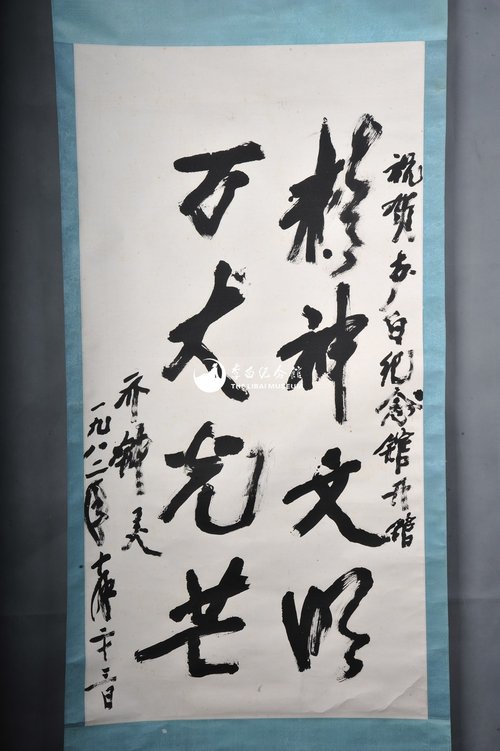 祝贺李白纪念馆开馆
精神文明
万丈光芒
一九八二年
李白纪念馆
THE LIBAI MUSEUM